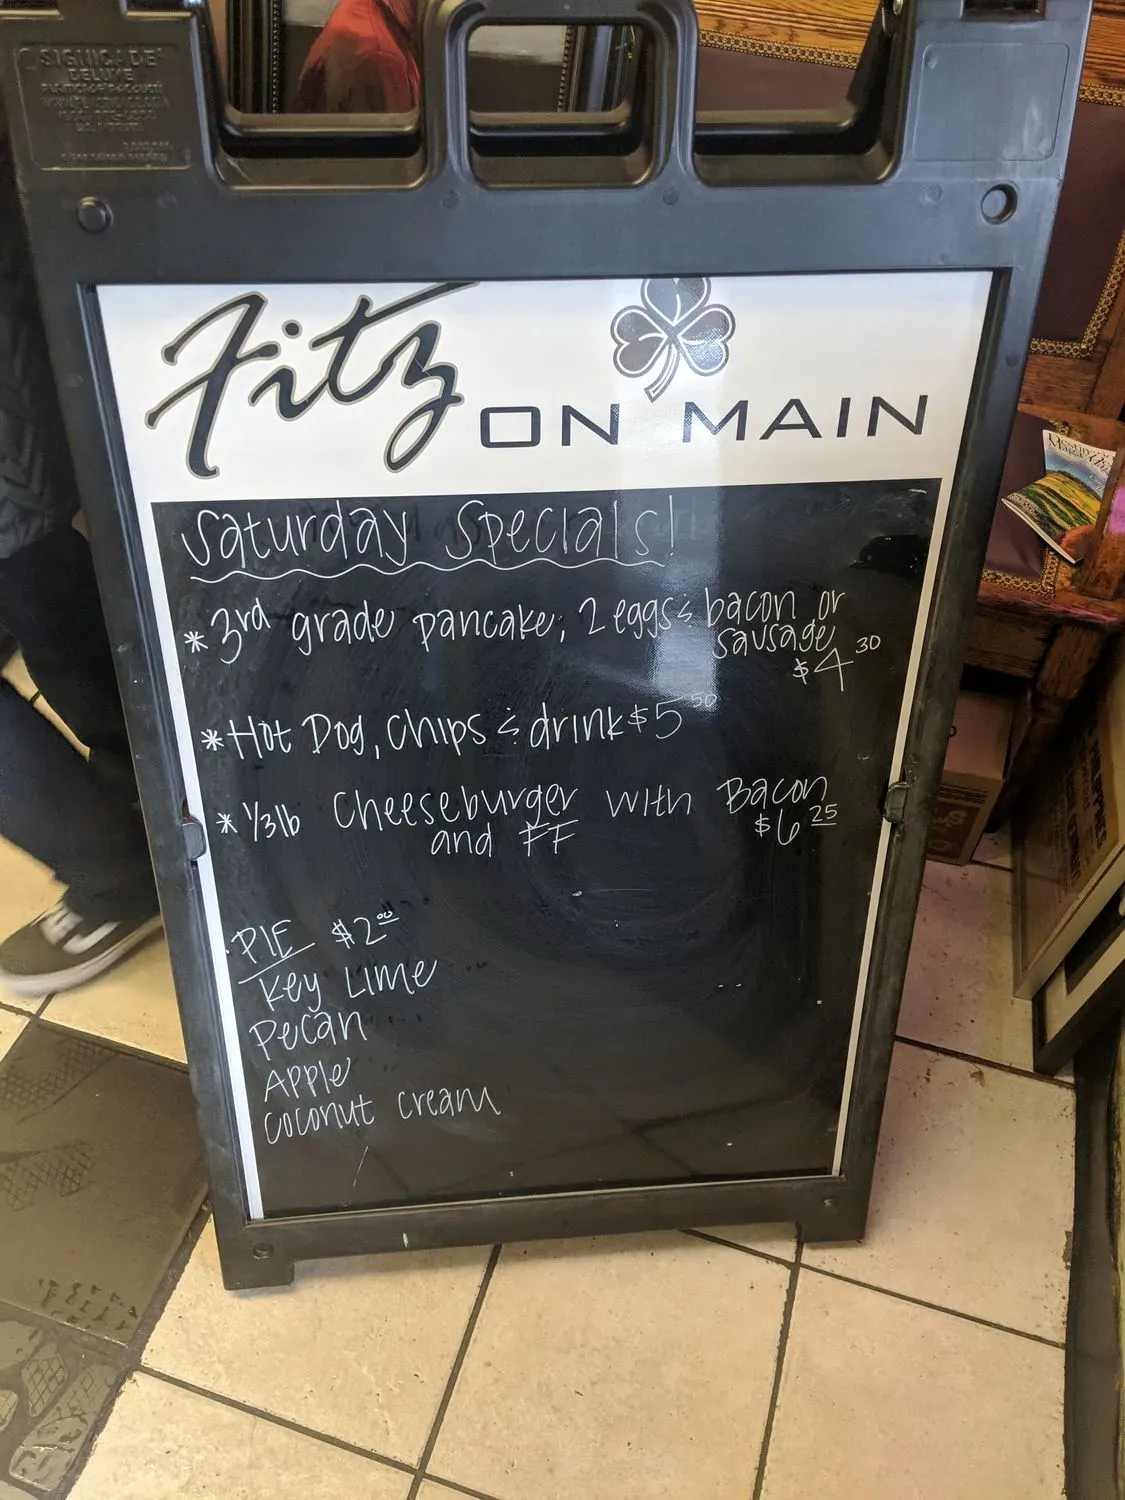 SIGNICADE
DELUXE
Fitz ON MAIN
Saturday Specials!
* 3rd grade pancake, 2 eggs & bacon or
sausage
$4 30
* Hot Dog, Chips & drink $5 50
* 1/3 lb Cheeseburger with Bacon
and FF $6 25
PIE $2 00
Key Lime
Pecan
Apple
Coconut Cream